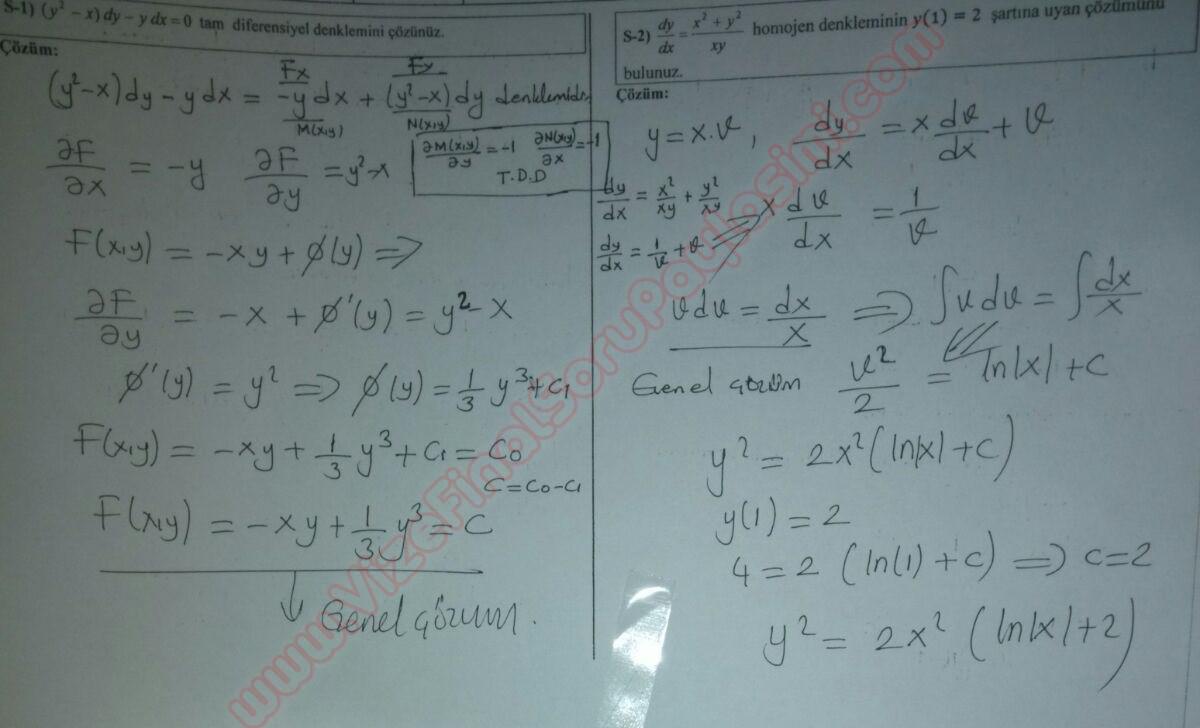 S-1) (y² - x) dy - y dx = 0 tam diferensiyel denklemini çözünüz.
Çözüm:
(y²-x)dy - y dx = -y dx + (y²-x) dy denklemide
Fx Fy
M(x,y) N(x,y)
∂F/∂x = -y ∂F/∂y = y²-x
∂M(x,y)/∂y = -1 ∂N(x,y)/∂x = -1
T.D.D
F(x,y) = -xy + ϕ(y) ⇒
∂F/∂y = -x + ϕ'(y) = y² - x
ϕ'(y) = y² ⇒ ϕ(y) = 1/3 y³ + c₁
F(x,y) = -xy + 1/3 y³ + c₁ = c₀
c = c₀ - c₁
F(x,y) = -xy + 1/3 y³ = c
↓ Genel çözüm.
S-2) dy/dx = (x² + y²)/xy homojen denkleminin y(1) = 2 şartına uyan çözümünü
bulunuz.
Çözüm:
y = x.v , dy/dx = x dv/dx + v
dy/dx = x²/xy + y²/xy
dy/dx = 1/v + v ⇒ x dv/dx = 1/v
v dv = dx/x ⇒ ∫v dv = ∫dx/x
Genel çözüm v²/2 = ln|x| + c
y² = 2x² (ln|x| + c)
y(1) = 2
4 = 2 (ln(1) + c) ⇒ c = 2
y² = 2x² (ln|x| + 2)
www.VizeFinalSoruPaylasimi.com